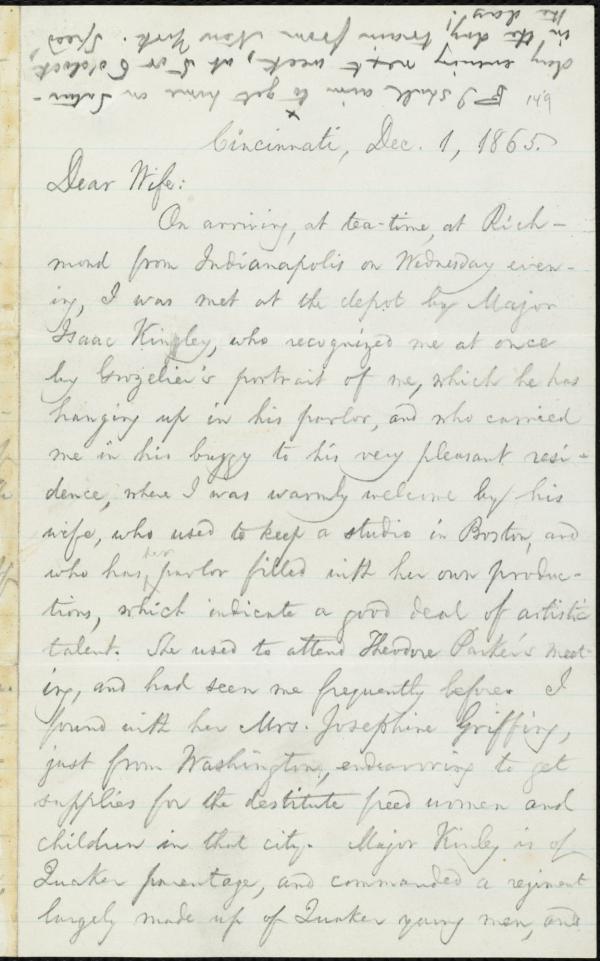 ☞ I shall aim to get home on Satur-
day evening next week, at 5 or 6 o'clock,
in the day train from New York. Speed
the day!
149
Cincinnati, Dec. 1, 1865.
Dear Wife:
On arriving, at tea-time, at Rich-
mond from Indianapolis on Wednesday even-
ing, I was met at the depot by Major
Isaac Kinley, who recognized me at once
by Grozelier's portrait of me, which he has
hanging up in his parlor, and who carried
me in his buggy to his very pleasant resi-
dence, where I was warmly welcome by his
wife, who used to keep a studio in Boston, and
who has her parlor filled with her own produc-
tions, which indicate a good deal of artistic
talent. She used to attend Theodore Parker's meet-
ing, and had seen me frequently before. I
found with her Mrs. Josephine Griffing,
just from Washington, endeavoring to get
supplies for the destitute freed women and
children in that city. Major Kinley is of
Quaker parentage, and commanded a regiment
largely made up of Quaker young men, and